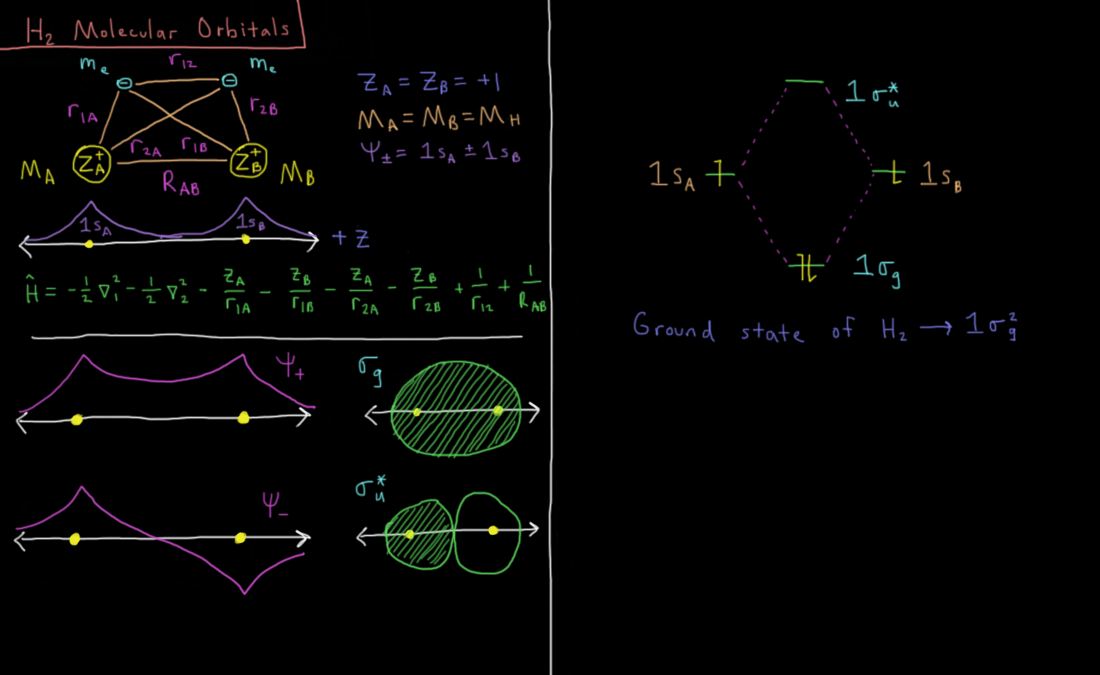 H₂ Molecular Orbitals
mₑ r₁₂ mₑ
r₁A r₂B
r₂A r₁B
M_A Z_A⁺ Z_B⁺ M_B
R_AB
Z_A = Z_B = +1
M_A = M_B = M_H
Ψ± = 1s_A ± 1s_B
1s_A 1s_B
+ Z
Ĥ = -½ ∇₁² - ½ ∇₂² - Z_A/r₁A - Z_B/r₁B - Z_A/r₂A - Z_B/r₂B + 1/r₁₂ + 1/R_AB
Ψ₊ σ_g
Ψ₋ σ_u*
1σ_u*
1s_A 1s_B
1σ_g
Ground state of H₂ → 1σ_g²